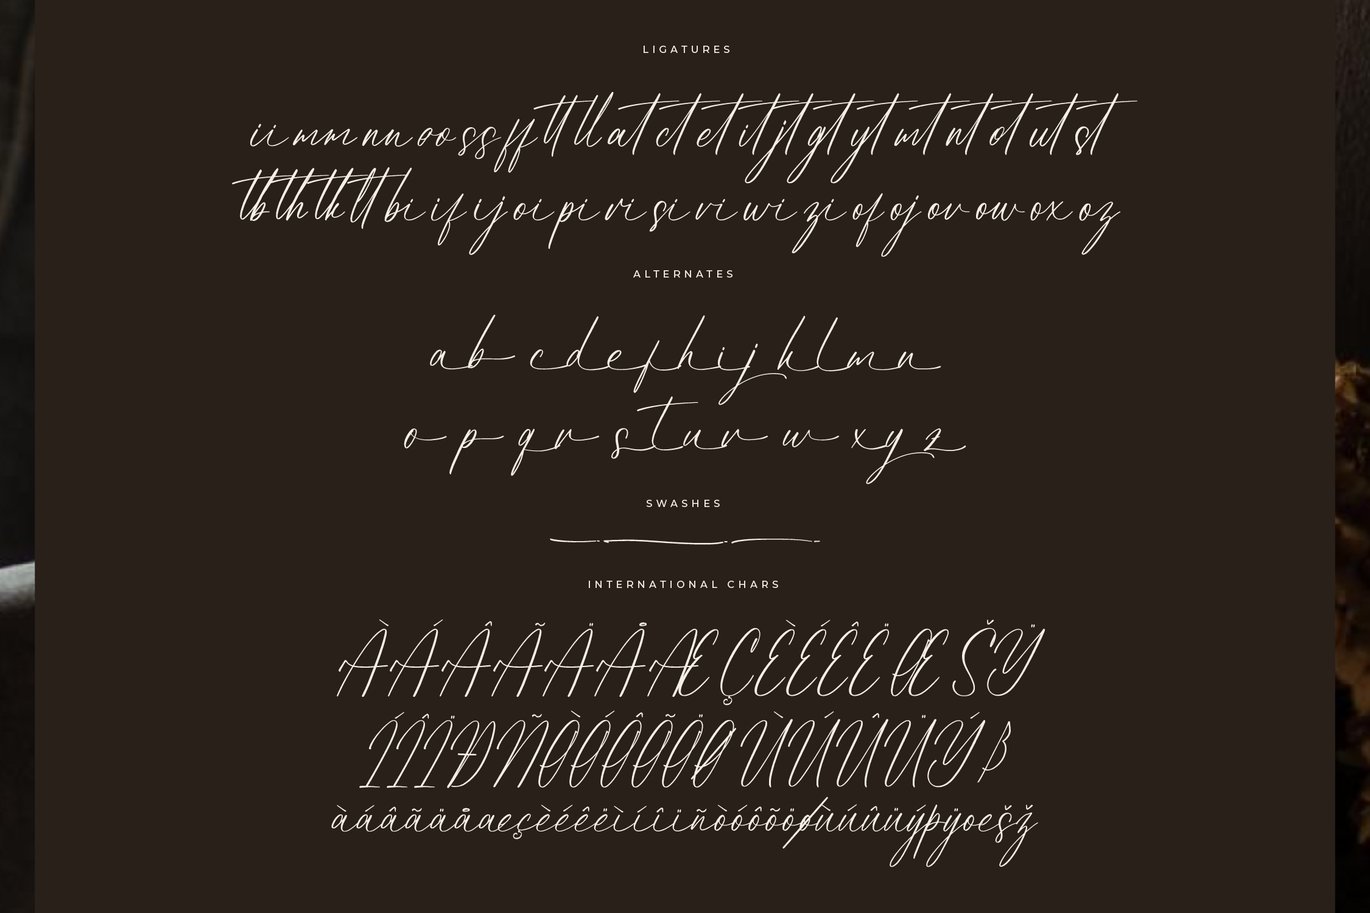 LIGATURES
ii mm nn oo ss ff tt ll at ct et it jt gt yt mt nt ot ut st
tb th tk lt bi if ij oi pi ri si vi wi zi of oj ov ow ox oz
ALTERNATES
a b c d e f h i j k l m n
o p q r s t u v w x y z
SWASHES
INTERNATIONAL CHARS
À Á Â Ã Ä Å Æ Ç È É Ê Ë Œ Š Ÿ
Í Î Ï Ð Ñ Ò Ó Ô Õ Ö Ø Ù Ú Û Ü Ý ß
à á â ã ä å æ ç è é ê ë ì í î ï ñ ò ó ô õ ö ø ù ú û ü ý þ ÿ œ š ž